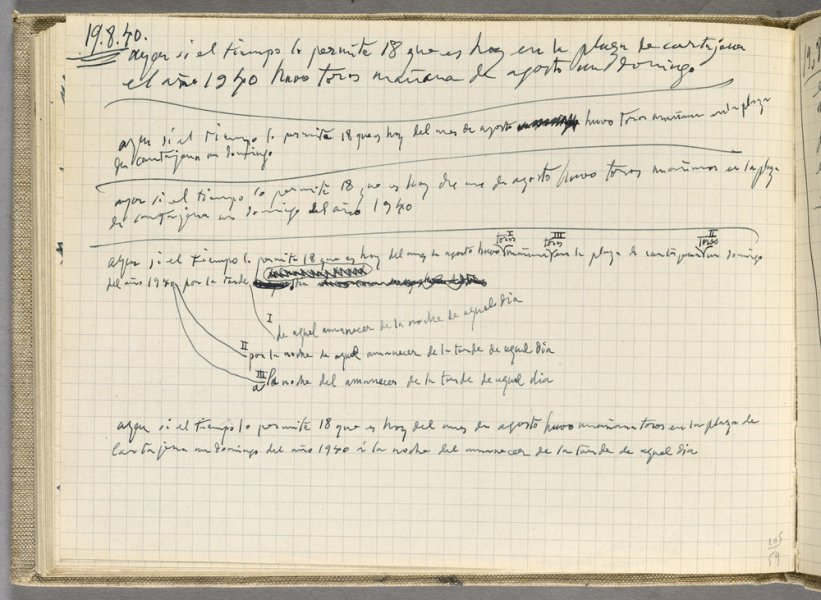 19.8.40.
ayer si el tiempo lo permite 18 que es hoy en la plaza de cartajena
el año 1940 huvo toros mañana de agosto un domingo
ayer si el tiempo lo permite 18 que es hoy del mes de agosto huvo toros mañana en la plaza
de cartajena un domingo
ayer si el tiempo lo permite 18 que es hoy de agosto huvo toros mañana en la plaza
de cartajena un domingo del año 1940
I III II
toros toros toros
ayer si el tiempo lo permite 18 que es hoy del mes de agosto huvo mañana en la plaza de cartajena un domingo
del año 1940 por la tarde
I
de aquel amanecer de la noche de aquel dia
II
por la noche de aquel amanecer de la tarde de aquel dia
III
a la noche del amanecer de la tarde de aquel dia
ayer si el tiempo lo permite 18 que es hoy del mes de agosto huvo mañana toros en la plaza de
Cartajena un domingo del año 1940 á la noche del amanecer de la tarde de aquel dia
19.8
205
59